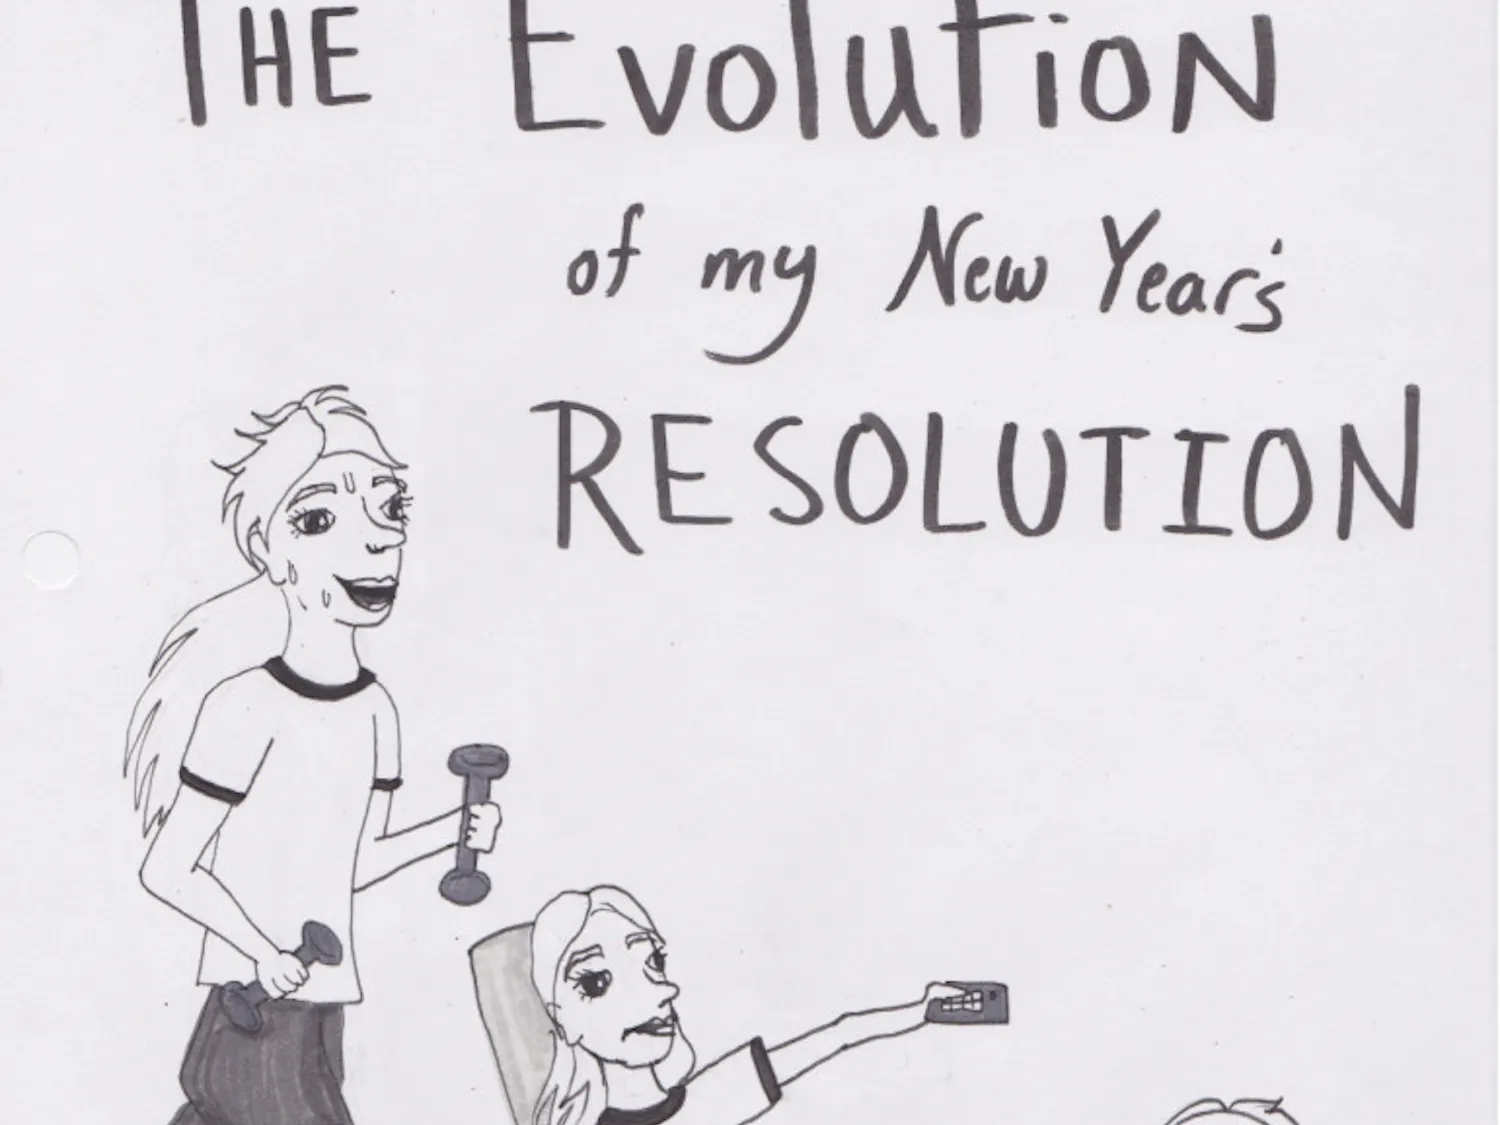 THE Evolution
of my New Year's
RESOLUTION